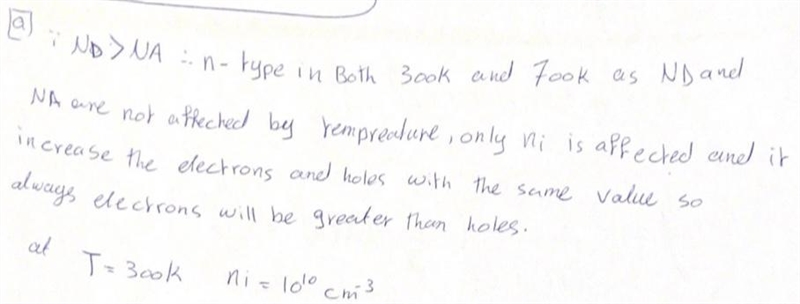 [a] ∵ ND > NA ∴ n-type in Both 300k and 700k as ND and
NA are not affected by tempreature, only ni is affected and it
increase the electrons and holes with the same value so
always electrons will be greater than holes.
at T = 300k ni = 10¹⁰ cm⁻³